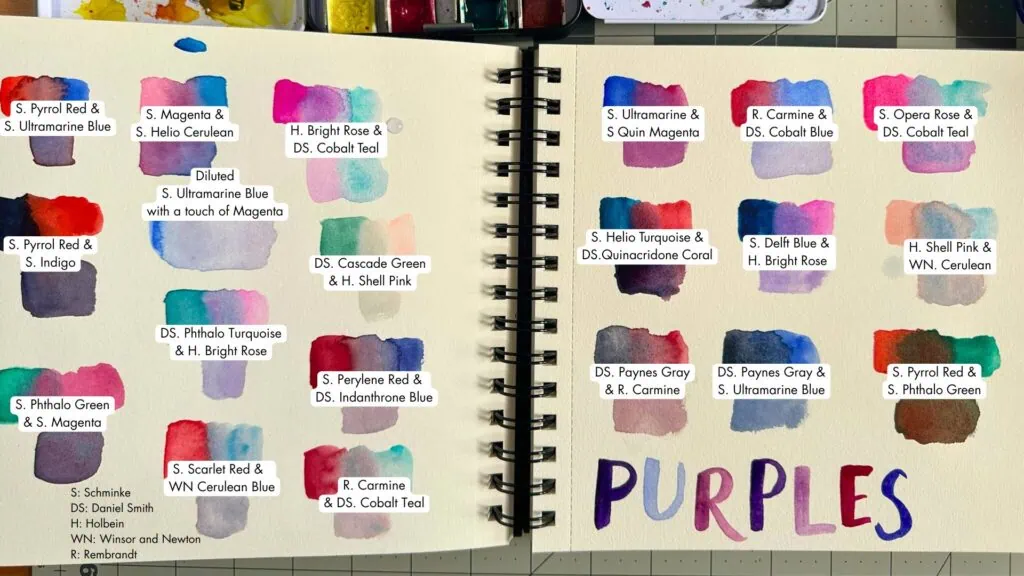 S. Pyrrol Red &
S. Ultramarine Blue
S. Magenta &
S. Helio Cerulean
H. Bright Rose &
DS. Cobalt Teal
Diluted
S. Ultramarine Blue
with a touch of Magenta
S. Pyrrol Red &
S. Indigo
DS. Cascade Green
& H. Shell Pink
DS. Phthalo Turquoise
& H. Bright Rose
S. Perylene Red &
DS. Indanthrone Blue
S. Phthalo Green
& S. Magenta
S. Scarlet Red &
WN Cerulean Blue
R. Carmine
& DS. Cobalt Teal
S: Schminke
DS: Daniel Smith
H: Holbein
WN: Winsor and Newton
R: Rembrandt
S. Ultramarine &
S Quin Magenta
R. Carmine &
DS. Cobalt Blue
S. Opera Rose &
DS. Cobalt Teal
S. Helio Turquoise &
DS.Quinacridone Coral
S. Delft Blue &
H. Bright Rose
H. Shell Pink &
WN. Cerulean
DS. Paynes Gray
& R. Carmine
DS. Paynes Gray &
S. Ultramarine Blue
S. Pyrrol Red &
S. Phthalo Green
PURPLES